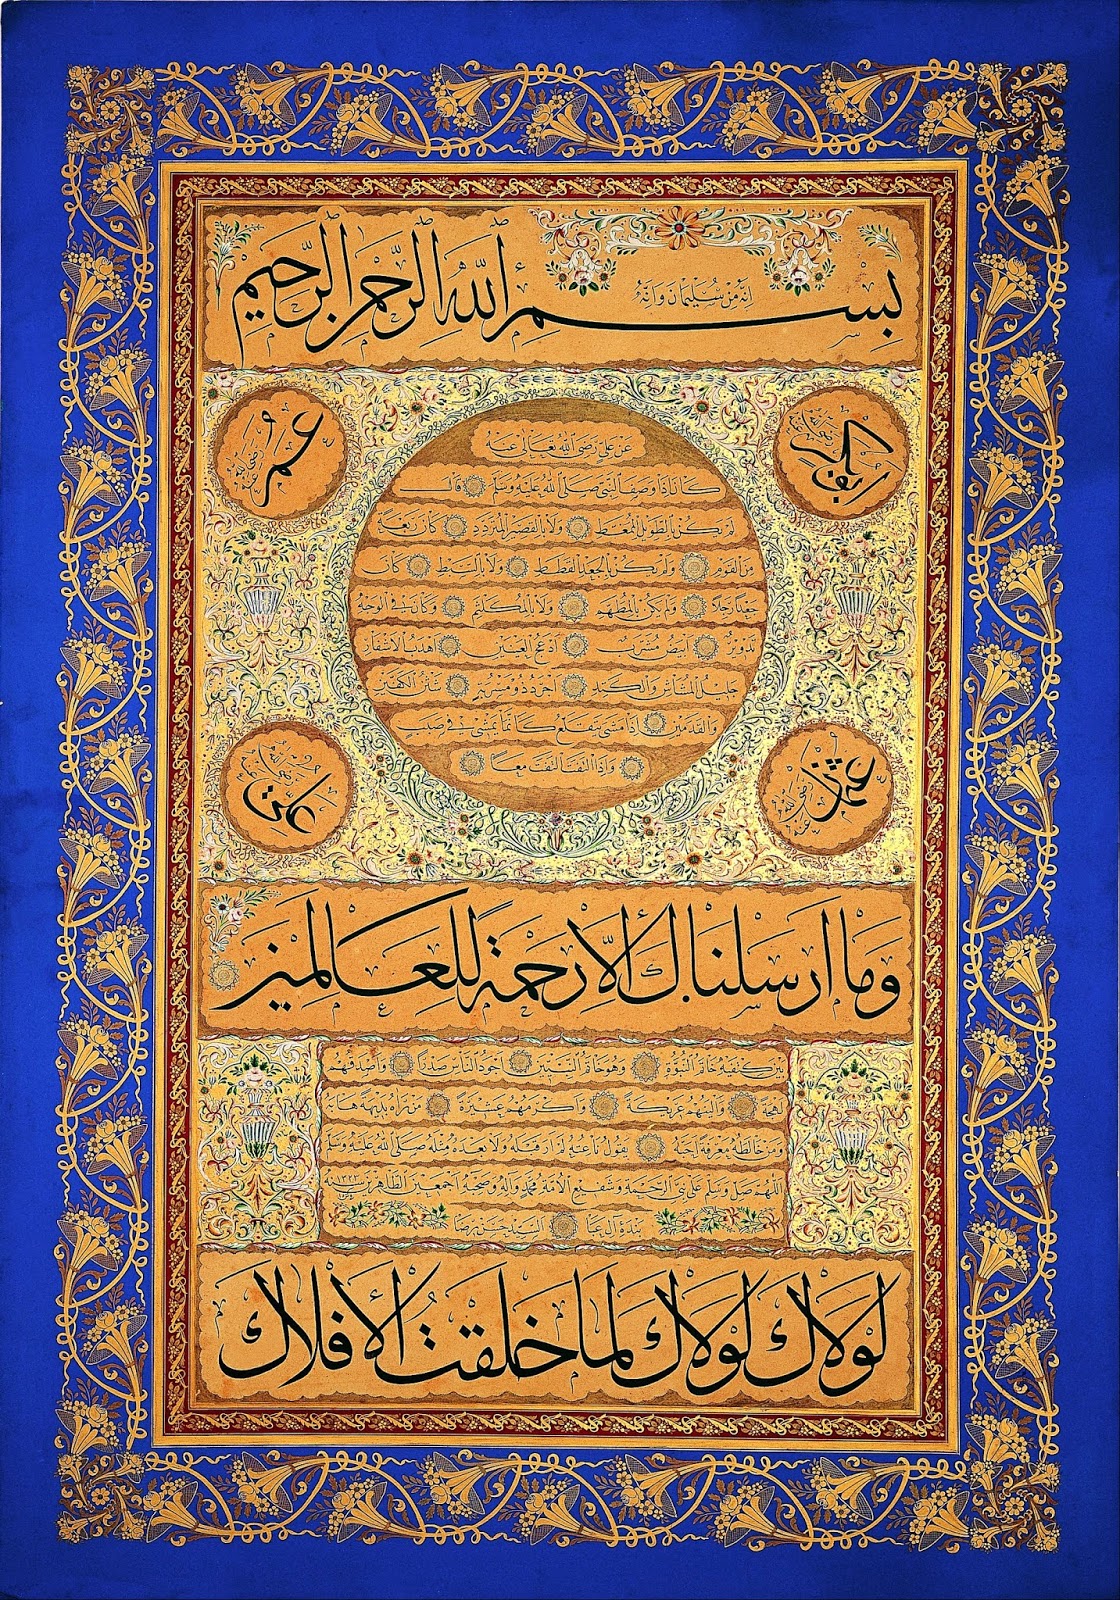 انه من سليمان وانه
بسم الله الرحمن الرحيم
ابو بكر رضى الله عنه
عمر رضى الله عنه
عن على رضى الله تعالى عنه
كان اذا وصف النبى صلى الله عليه وسلم قال
لم يكن بالطويل الممغط ولا بالقصير المتردد كان ربعة
من القوم ولم يكن بالجعد القطط ولا بالسبط كان
جعدا رجلا ولم يكن بالمطهم ولا بالمكلثم وكان فى الوجه
تدوير ابيض مشرب ادعج العينين اهدب الاشفار
جليل المشاش والكتد اجرد ذو مسربة شثن الكفين
والقدمين اذا مشى تقلع كانما يمشى فى صبب
واذا التفت التفت معا
عثمان رضى الله عنه
على رضى الله عنه
وما ارسلناك الا رحمة للعالمين
بين كتفيه خاتم النبوة وهو خاتم النبيين اجود الناس صدرا واصدقهم
لهجة والينهم عريكة واكرمهم عشيرة من رآه بديهة هابه
ومن خالطه معرفة احبه يقول ناعته لم ار قبله ولا بعده مثله صلى الله عليه وسلم
اللهم صل وسلم على نبى الرحمة وشفيع الامة محمد وآله وصحبه اجمعين الطاهرين سنة
بندۀ آل عبا السيد حسن رضا
لولاك لولاك لما خلقت الافلاك